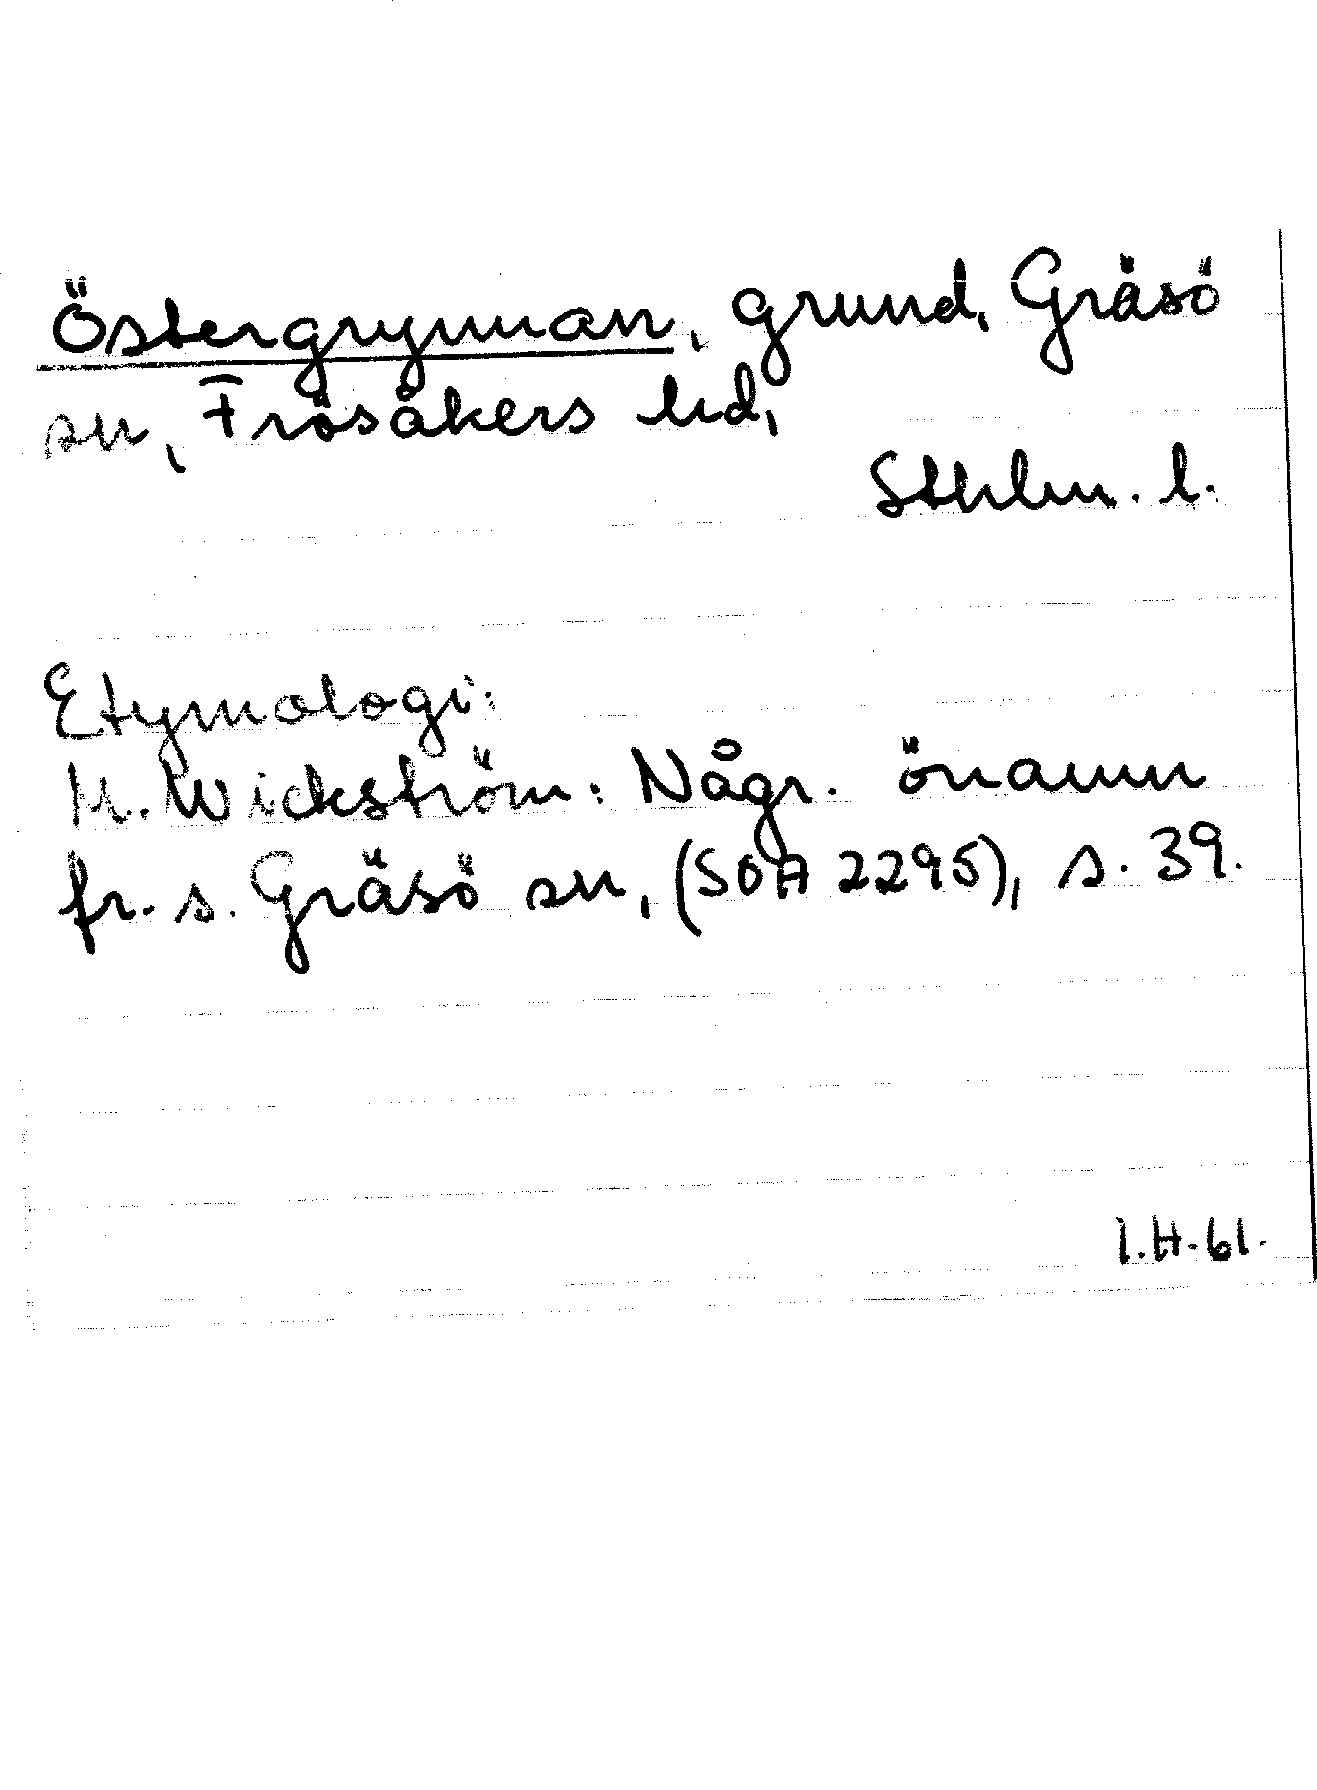 Östergrynnan, grund, Gräsö
sn, Frösåkers hd,
Sthlm. l.
Etymologi:
M. Wickström: Någr. önamn
fr. s. Gräsö sn, (SOA 2295), s. 39.
I.H.61.